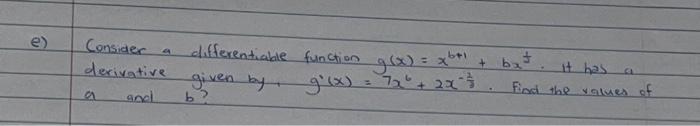 e) Consider a differentiable function g(x) = x^{b+1} + bx^{\frac{1}{3}}. It has a
derivative given by, g'(x) = 7x^{6} + 2x^{-\frac{2}{3}}. Find the values of
a and b?